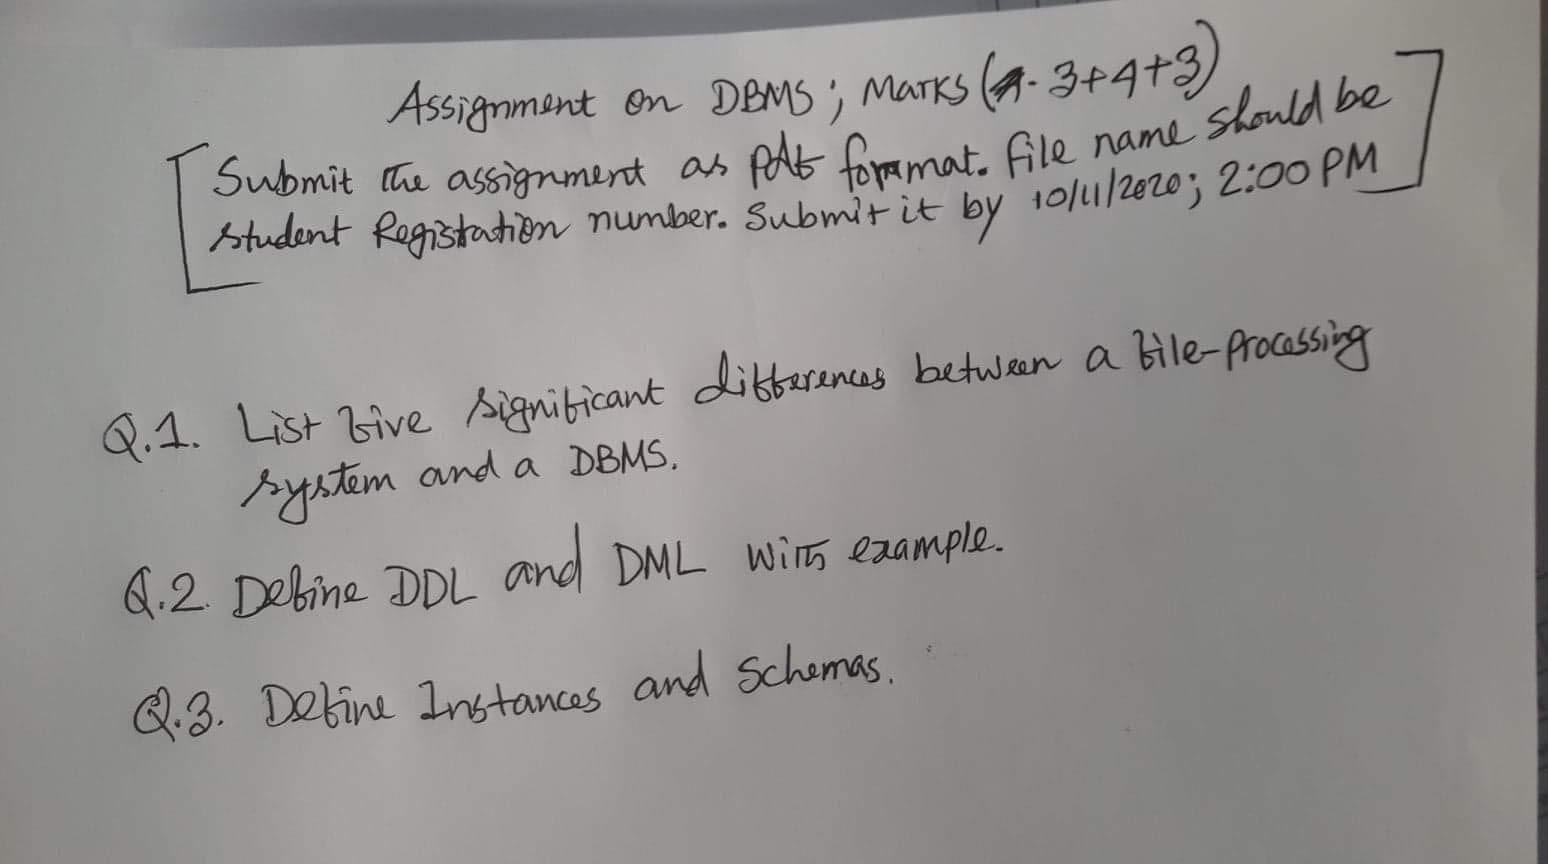 Assignment on DBMS; Marks ( 3+4+3)
[Submit the assignment as pdf formmat. File name should be]
student Registation number. Submit it by 10/11/2020; 2:00 PM
Q.1. List five significant differences between a file-processing
system and a DBMS.
Q.2. Define DDL and DML with example.
Q.3. Define Instances and Schemas.